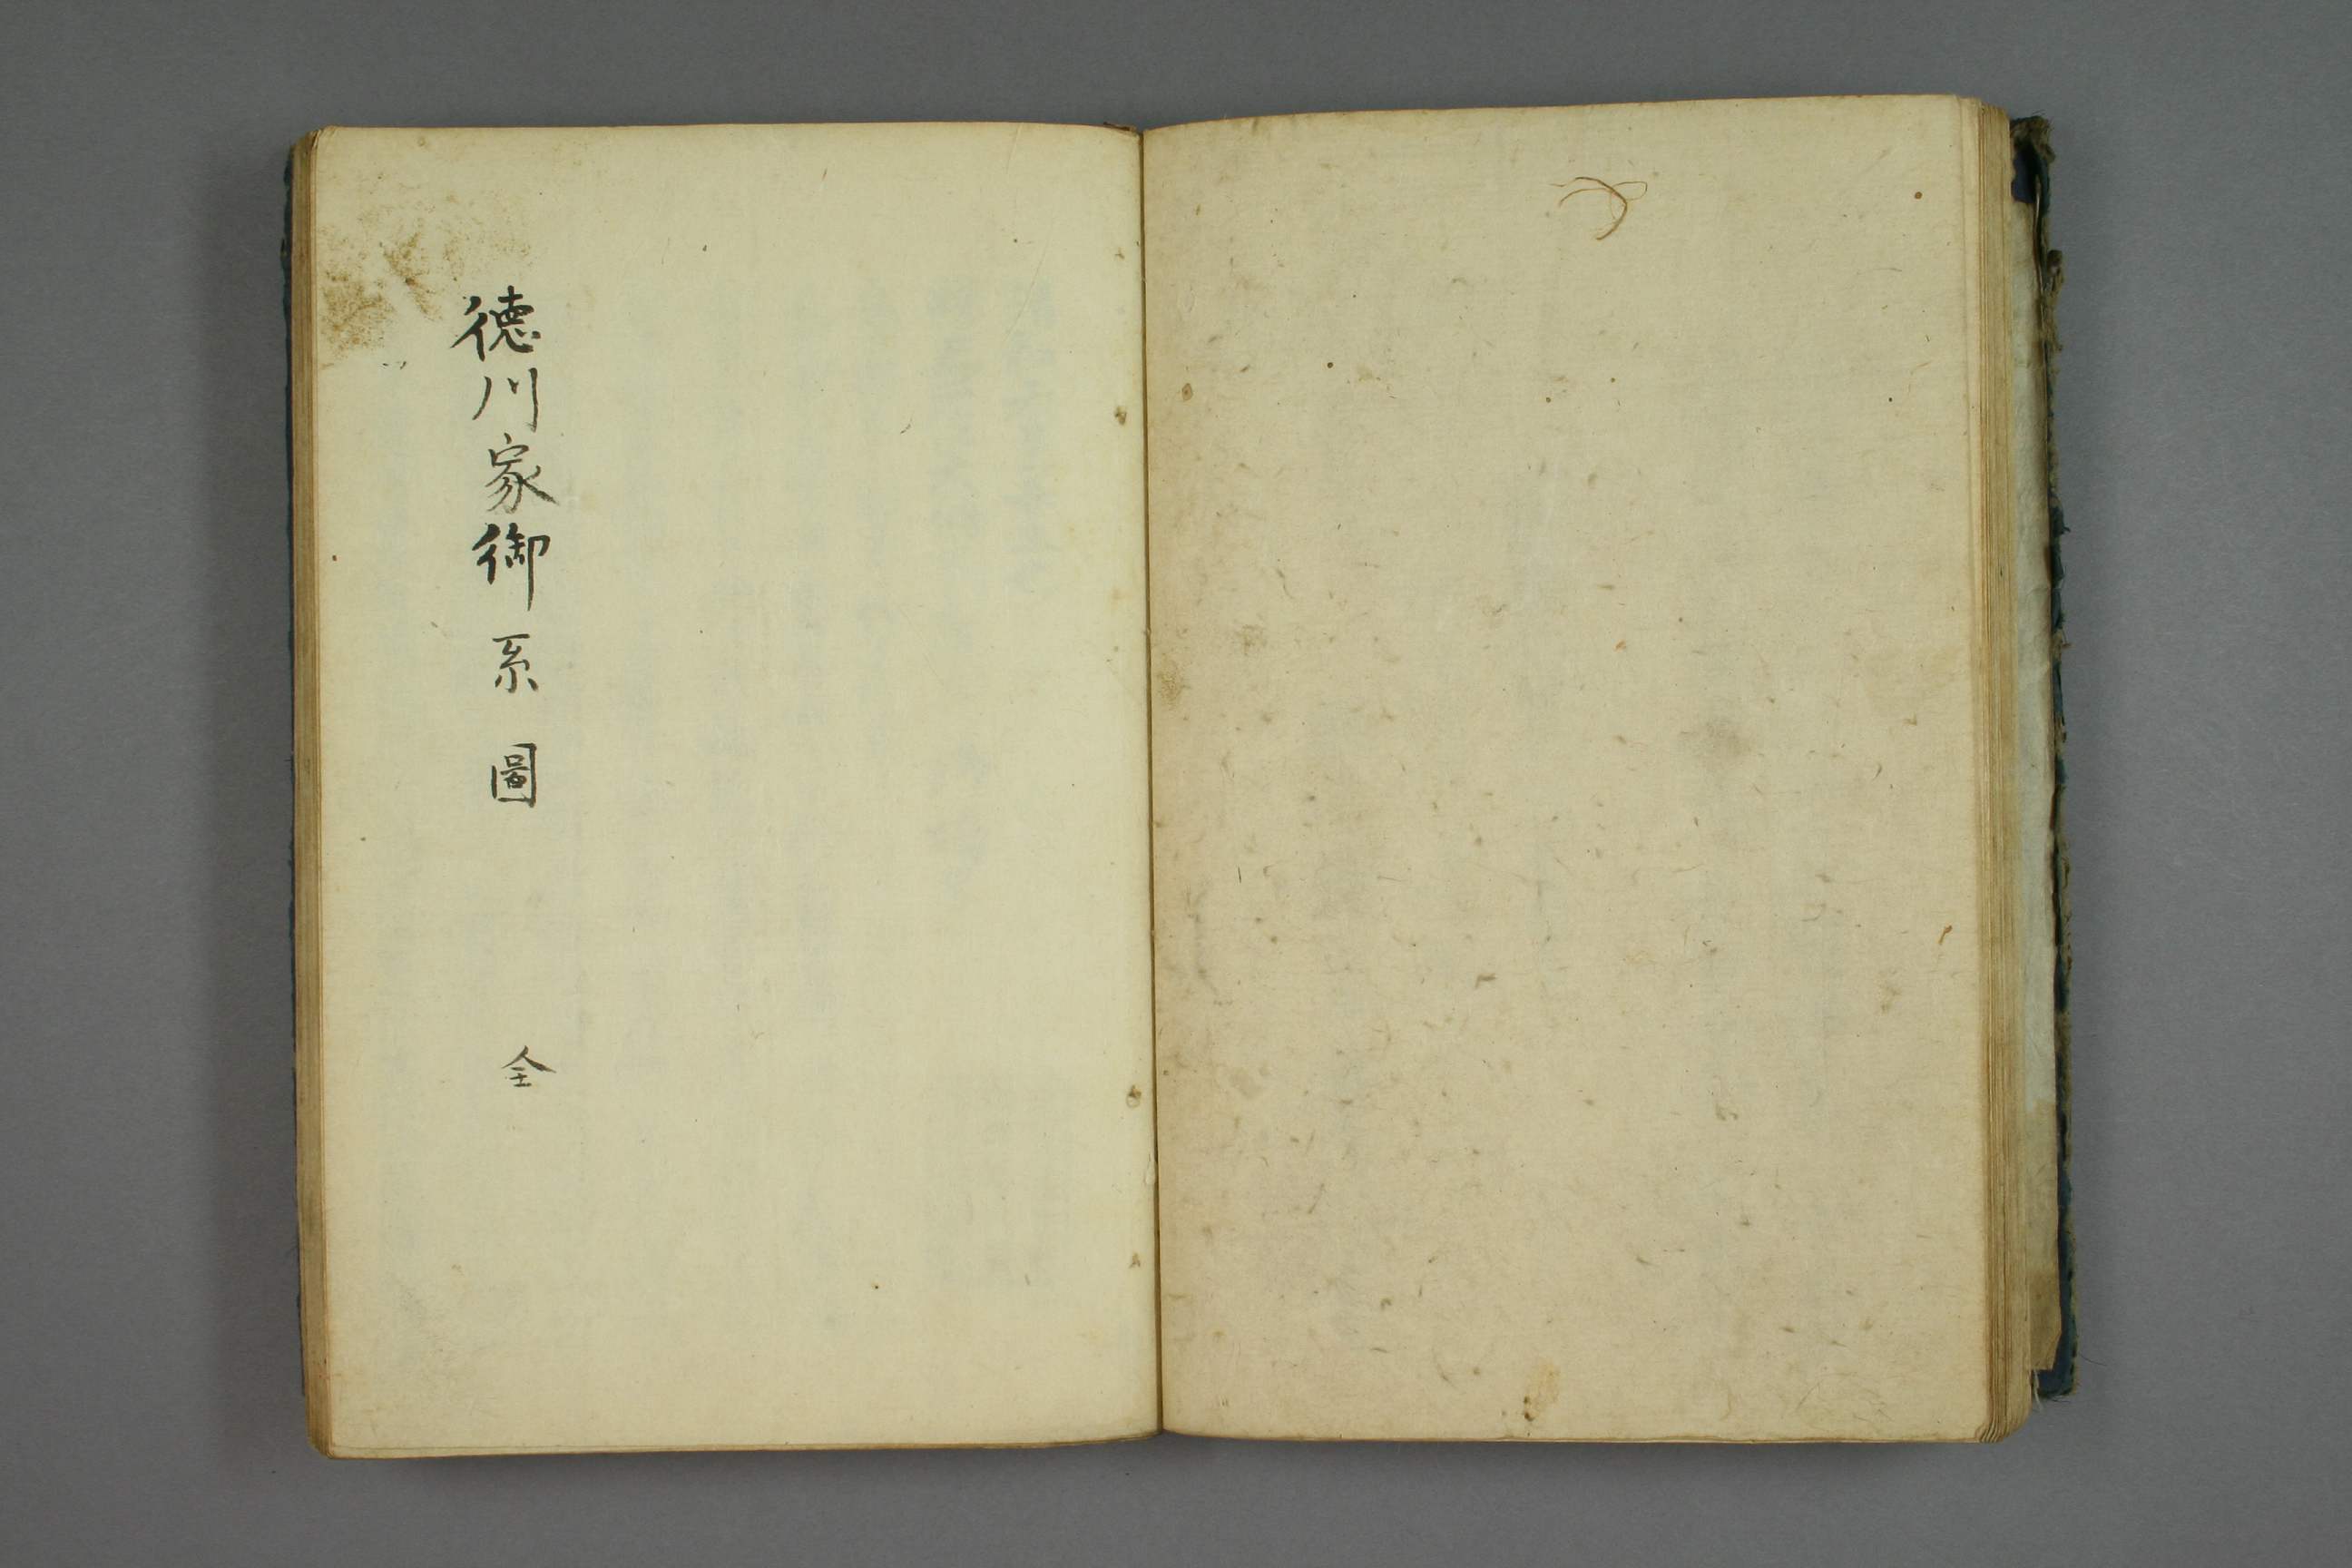 徳川家御系圖　全